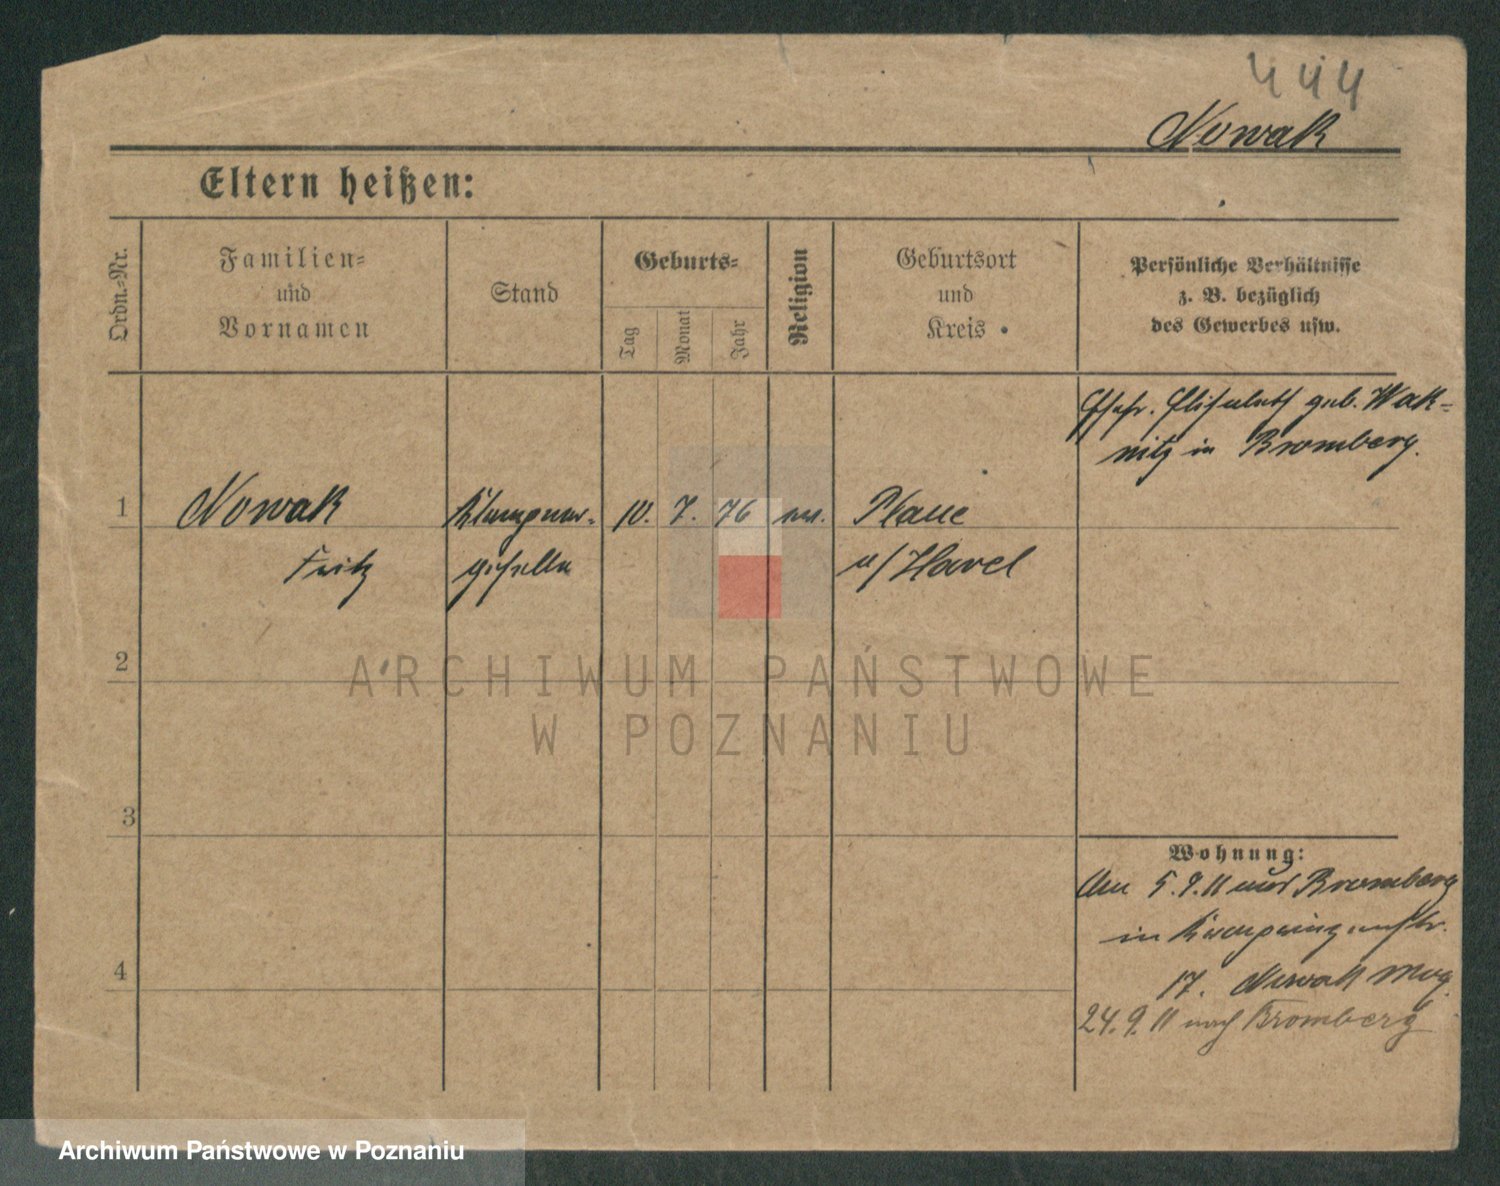 444
Nowak
Eltern heißen:
Ordn.-Nr.
Familien-
und
Vornamen
Stand
Geburts-
Tag
Monat
Jahr
Religion
Geburtsort
und
Kreis
Persönliche Verhältnisse
z. B. bezüglich
des Gewerbes usw.
Ehefr. Elisabeth geb. Wak-
nitz in Bromberg.
1
Nowak
Klempner-
10. 7. 76
ev.
Plaue
Fritz
geselle
a/Havel
2
ARCHIWUM PAŃSTWOWE
W POZNANIU
3
Wohnung:
Am 5.9.11 aus Bromberg
in
4
17. Nowak
24.9.11 nach Bromberg
Archiwum Państwowe w Poznaniu